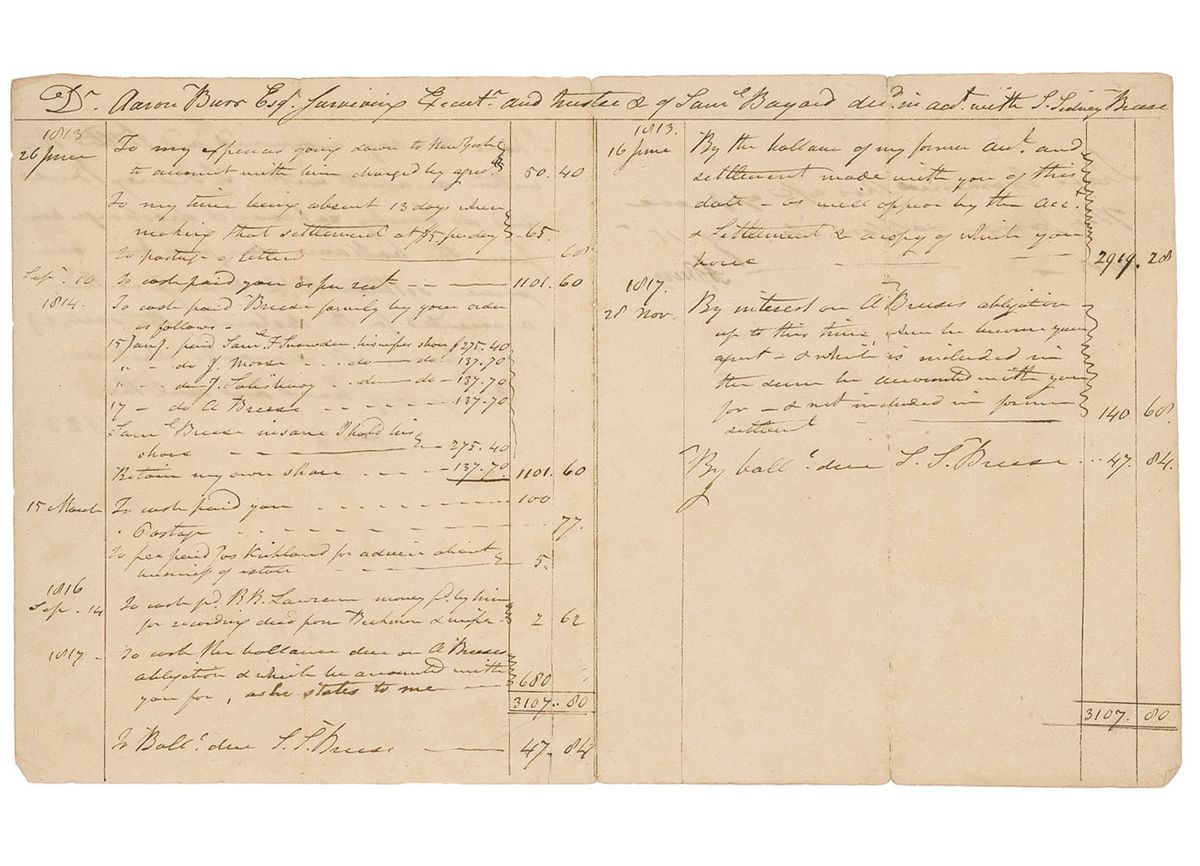 Dr. Aaron Burr Esqr. Surviving Executr. and trustee &c of Saml. Bayard decd. in acct. with S. Sidney Breese
1813
26 June To my expences going down to New York
to account with him charged by agret. 50. 40
To my time being absent 13 days when
making that settlement at $5 per day 65.
To postage of letters 68
Sepr. 10 To cash paid you as per rect 1101. 60
1814. To cash paid Breese family by your order
as follows -
15 Jany. paid Saml. F Snowden his wifes share $275.40
" - do J. Morse - do - do - 137.70
" - do J. Salisbury - do - do - 137.70
17 - do A Breese - 137.70
Saml. Breese insane I hold his
share - 275.40
Retain my own share - 137.70 1101. 60
15 March To cash paid you 100
" Postage 77.
To fee paid Jos Kirkland for advice about
business of estate 5.
1816
Sep. 14 To cash pd. B. R. Lawrence money pd. by him
for recording deed from Beekman & wife 2 62
1817 - To cash the ballance due on A Breeses
obligation & which he accounted with
you for, as he states to me 680
3107.. 80
To Ballc. due S. S. Breese 47. 84
1813.
16 June By the ballance of my former acct. and
settlement made with you of this
date - as will appear by the acct.
& Settlement & a copy of which you
have 2919. 28
1817.
28 Nov. By interest on A Breeses obligation
up to this time, when he became your
- & which is included in
the sum he accounted with you
for - & not included in former
settlemt. 140 68
By ballc. due S. S. Breese 47. 84.
3107. 80